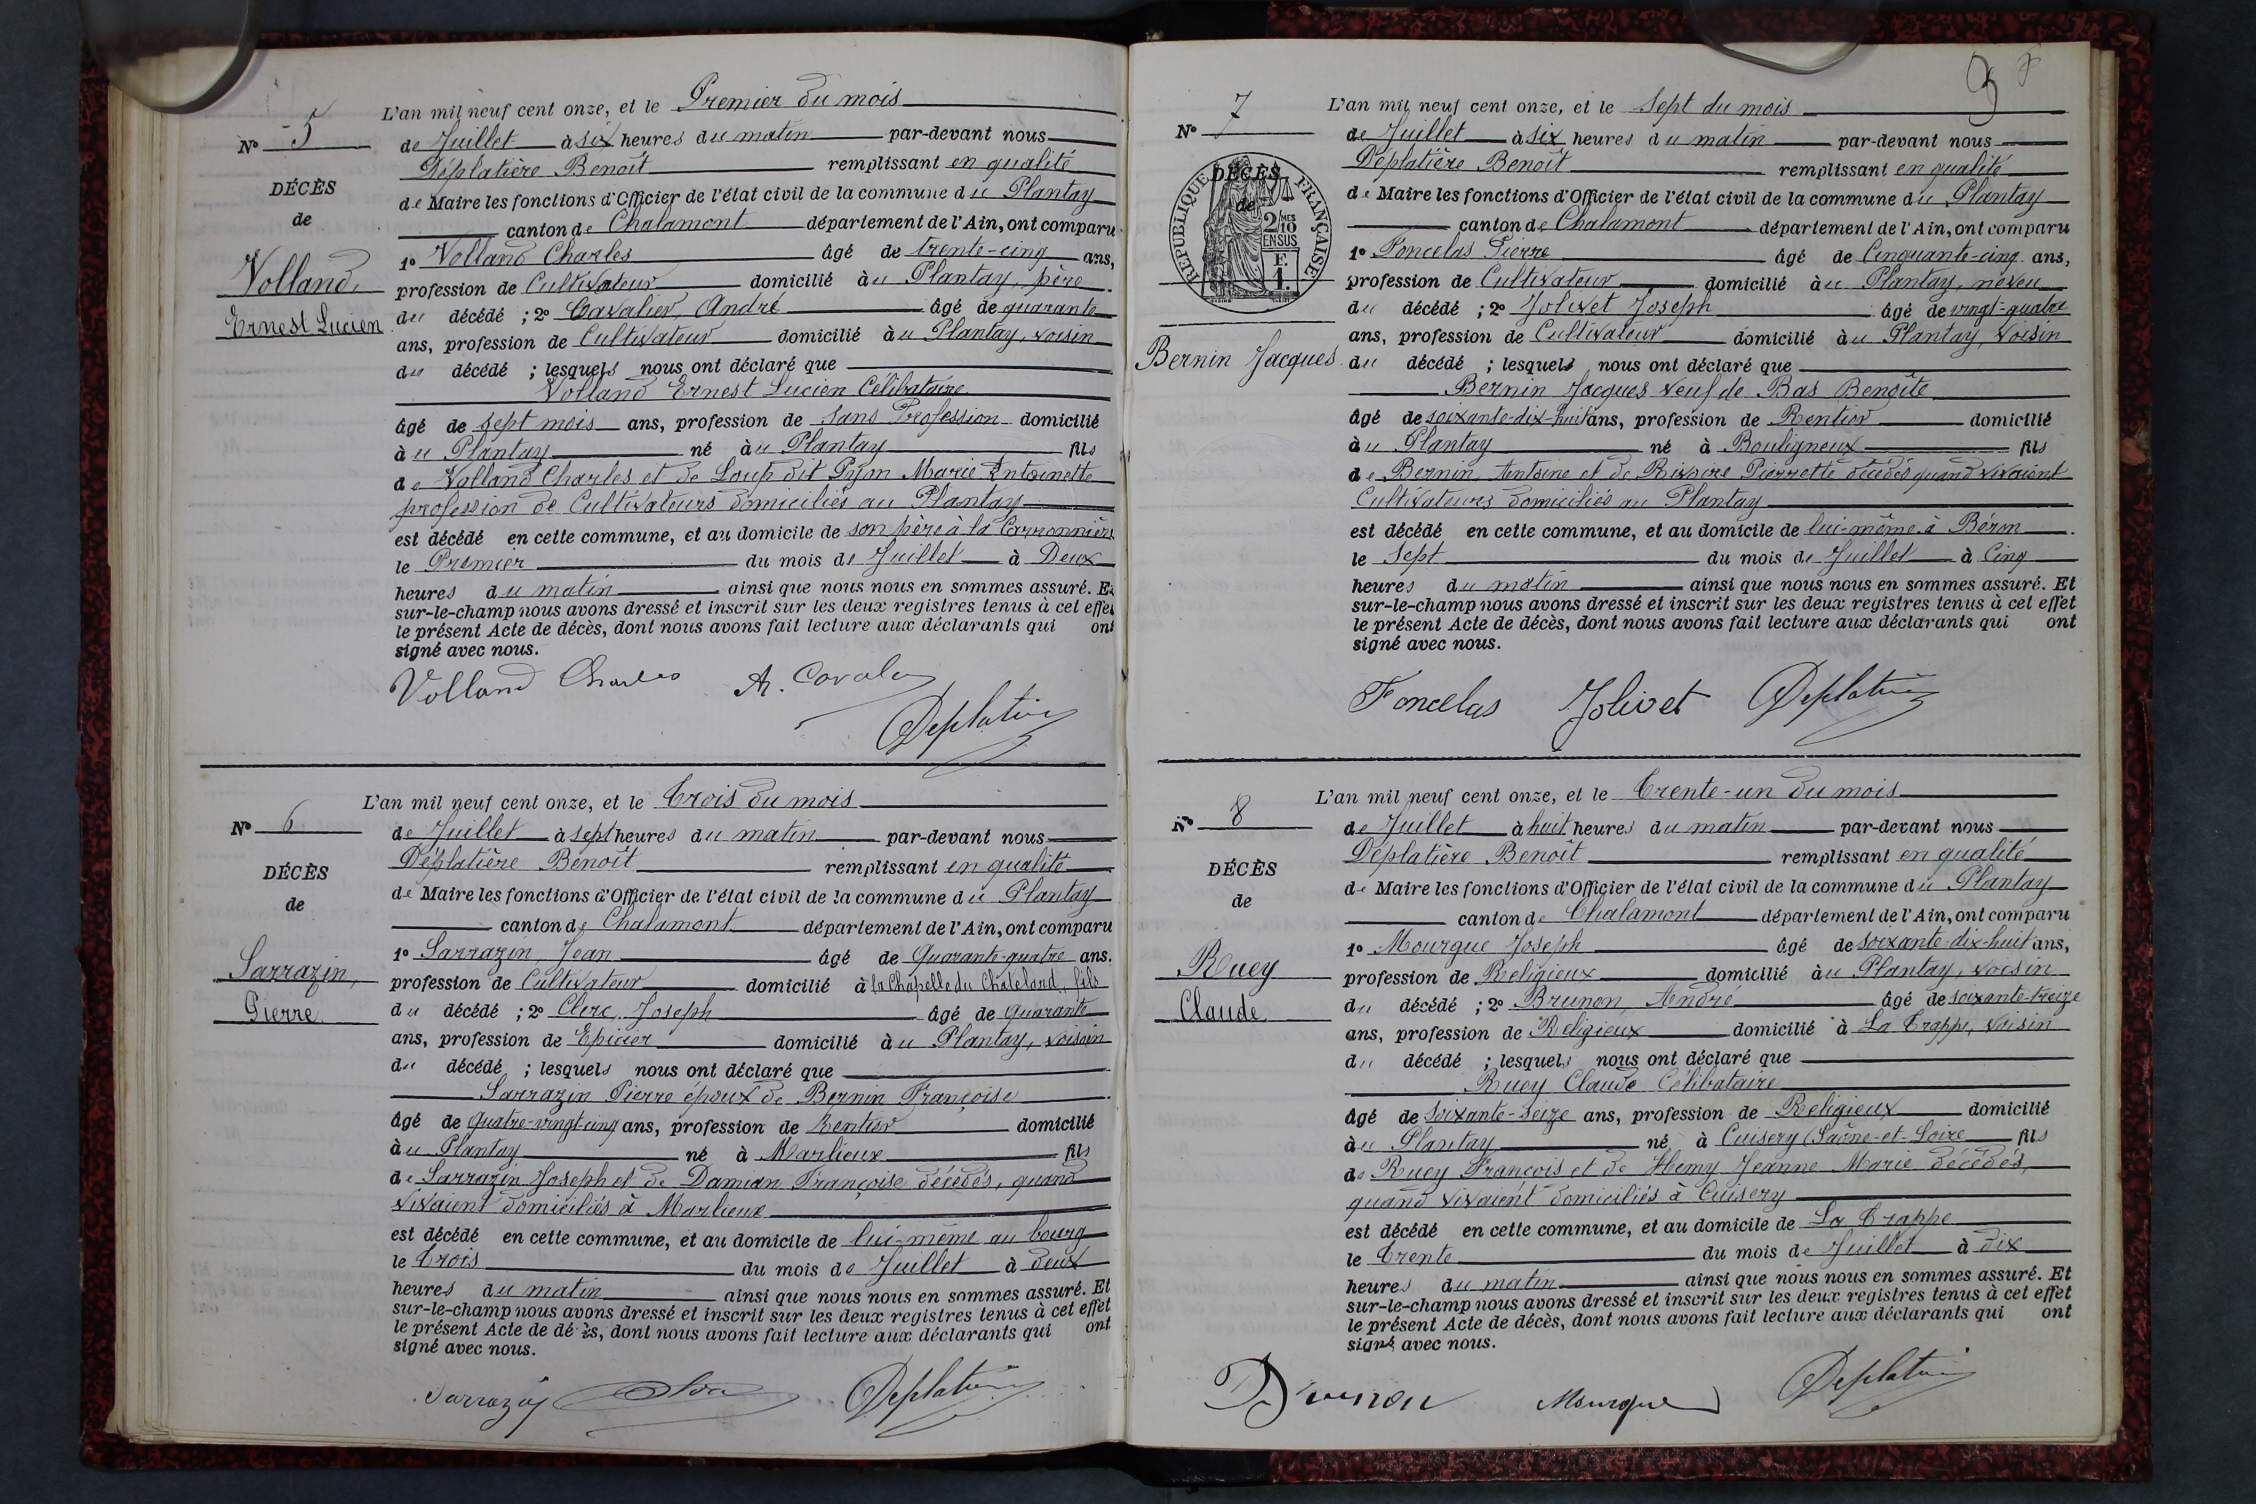 L'an mil neuf cent onze, et le Premier du mois
N° 5
de Juillet à six heures du matin par-devant nous
Déplatière Benoît remplissant en qualité
DÉCÈS
de Maire les fonctions d'Officier de l'état civil de la commune du Plantay
de
canton de Chalamont département de l'Ain, ont comparu
1° Volland Charles âgé de trente-cinq ans,
Volland,
profession de Cultivateur domicilié au Plantay, père
Ernest Lucien
du décédé ; 2° Cavalier, André âgé de quarante
ans, profession de Cultivateur domicilié au Plantay, voisin
du décédé ; lesquels nous ont déclaré que
Volland Ernest Lucien Célibataire
âgé de sept mois ans, profession de sans Profession domicilié
au Plantay né au Plantay fils
de Volland Charles et de Loup dit Pyon Marie Antoinette
profession de Cultivateurs domiciliés au Plantay
est décédé en cette commune, et au domicile de son père à la
le Premier du mois de Juillet à Deux
heures du matin ainsi que nous nous en sommes assuré. Et
sur-le-champ nous avons dressé et inscrit sur les deux registres tenus à cet effet
le présent Acte de décès, dont nous avons fait lecture aux déclarants qui ont
signé avec nous.
Volland Charles A. Cavalier
Deplatière
L'an mil neuf cent onze, et le Trois du mois
N° 6
de Juillet à sept heures du matin par-devant nous
Déplatière Benoît remplissant en qualité
DÉCÈS
de Maire les fonctions d'Officier de l'état civil de la commune du Plantay
de
canton de Chalamont département de l'Ain, ont comparu
1° Sarrazin, Jean âgé de Quarante-quatre ans.
Sarrazin,
profession de Cultivateur domicilié à la Chapelle du Châtelard, fils
Pierre
du décédé ; 2° Clerc, Joseph âgé de Quarante
ans, profession de Epicier domicilié au Plantay, voisin
du décédé ; lesquels nous ont déclaré que
Sarrazin Pierre époux de Bernin Françoise
âgé de quatre-vingt-cinq ans, profession de Rentier domicilié
au Plantay né à Marlieux fils
de Sarrazin Joseph et de Damian Françoise décédés, quand
vivaient domiciliés à Marlieux
est décédé en cette commune, et au domicile de lui-même au bourg
le Trois du mois de Juillet à deux
heures du matin ainsi que nous nous en sommes assuré. Et
sur-le-champ nous avons dressé et inscrit sur les deux registres tenus à cet effet
le présent Acte de décès, dont nous avons fait lecture aux déclarants qui ont
signé avec nous.
Sarrazin Deplatière
L'an mil neuf cent onze, et le Sept du mois
N° 7
de Juillet à six heures du matin par-devant nous
Déplatière Benoît remplissant en qualité
DÉCÈS
de
RÉPUBLIQUE FRANÇAISE
2/10 MES
EN SUS
F.
1.
de Maire les fonctions d'Officier de l'état civil de la commune du Plantay
canton de Chalamont département de l'Ain, ont comparu
1° Foncelas Pierre âgé de Cinquante-cinq ans,
profession de Cultivateur domicilié au Plantay, neveu
du décédé ; 2° Jolivet Joseph âgé de vingt-quatre
ans, profession de Cultivateur domicilié au Plantay, voisin
Bernin Jacques
du décédé ; lesquels nous ont déclaré que
Bernin Jacques veuf de Bas Benoîte
âgé de soixante-dix-huit ans, profession de Rentier domicilié
au Plantay né à Bouligneux fils
de Bernin Antoine et de Pierrette décédés quand vivaient
Cultivateurs domiciliés au Plantay
est décédé en cette commune, et au domicile de lui-même à Béron
le Sept du mois de Juillet à Cinq
heures du matin ainsi que nous nous en sommes assuré. Et
sur-le-champ nous avons dressé et inscrit sur les deux registres tenus à cet effet
le présent Acte de décès, dont nous avons fait lecture aux déclarants qui ont
signé avec nous.
Foncelas Jolivet Deplatière
L'an mil neuf cent onze, et le Trente-un du mois
N° 8
de Juillet à huit heures du matin par-devant nous
Déplatière Benoît remplissant en qualité
DÉCÈS
de Maire les fonctions d'Officier de l'état civil de la commune du Plantay
de
canton de Chalamont département de l'Ain, ont comparu
1° Mourgue Joseph âgé de soixante-dix-huit ans,
Ruey
profession de Religieux domicilié au Plantay, voisin
Claude
du décédé ; 2° Brunon, André âgé de soixante-treize
ans, profession de Religieux domicilié à La Trappe, voisin
du décédé ; lesquels nous ont déclaré que
Ruey Claude Célibataire
âgé de soixante-seize ans, profession de Religieux domicilié
au Plantay né à Cuisery (Saône-et-Loire fils
de Ruey François et de Hemy Jeanne Marie décédés,
quand vivaient domiciliés à Cuisery
est décédé en cette commune, et au domicile de La Trappe
le Trente du mois de Juillet à dix
heures du matin ainsi que nous nous en sommes assuré. Et
sur-le-champ nous avons dressé et inscrit sur les deux registres tenus à cet effet
le présent Acte de décès, dont nous avons fait lecture aux déclarants qui ont
signé avec nous.
Brunon Mourgue Deplatière